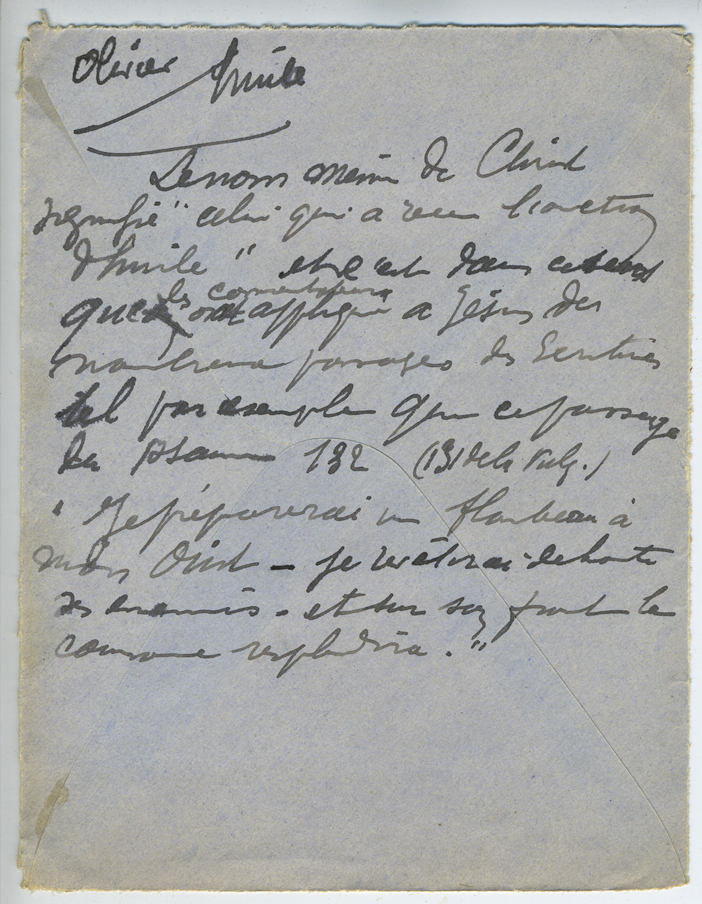 Olivier Huile
Le nom même de Christ
signifie "celui qui a reçu l'onction
d'huile" et c'est dans ce sens
que les comentateurs ont appliqué à Jésus des
nombreux passages des Ecritures
tel par exemple que ce passage
du Psaume 132 (131 de la Vulg.)
" Je préparerai un flambeau à
mon Oint – je revêtirai de honte
ses ennemis – et sur son front la
couronne resplendira . "